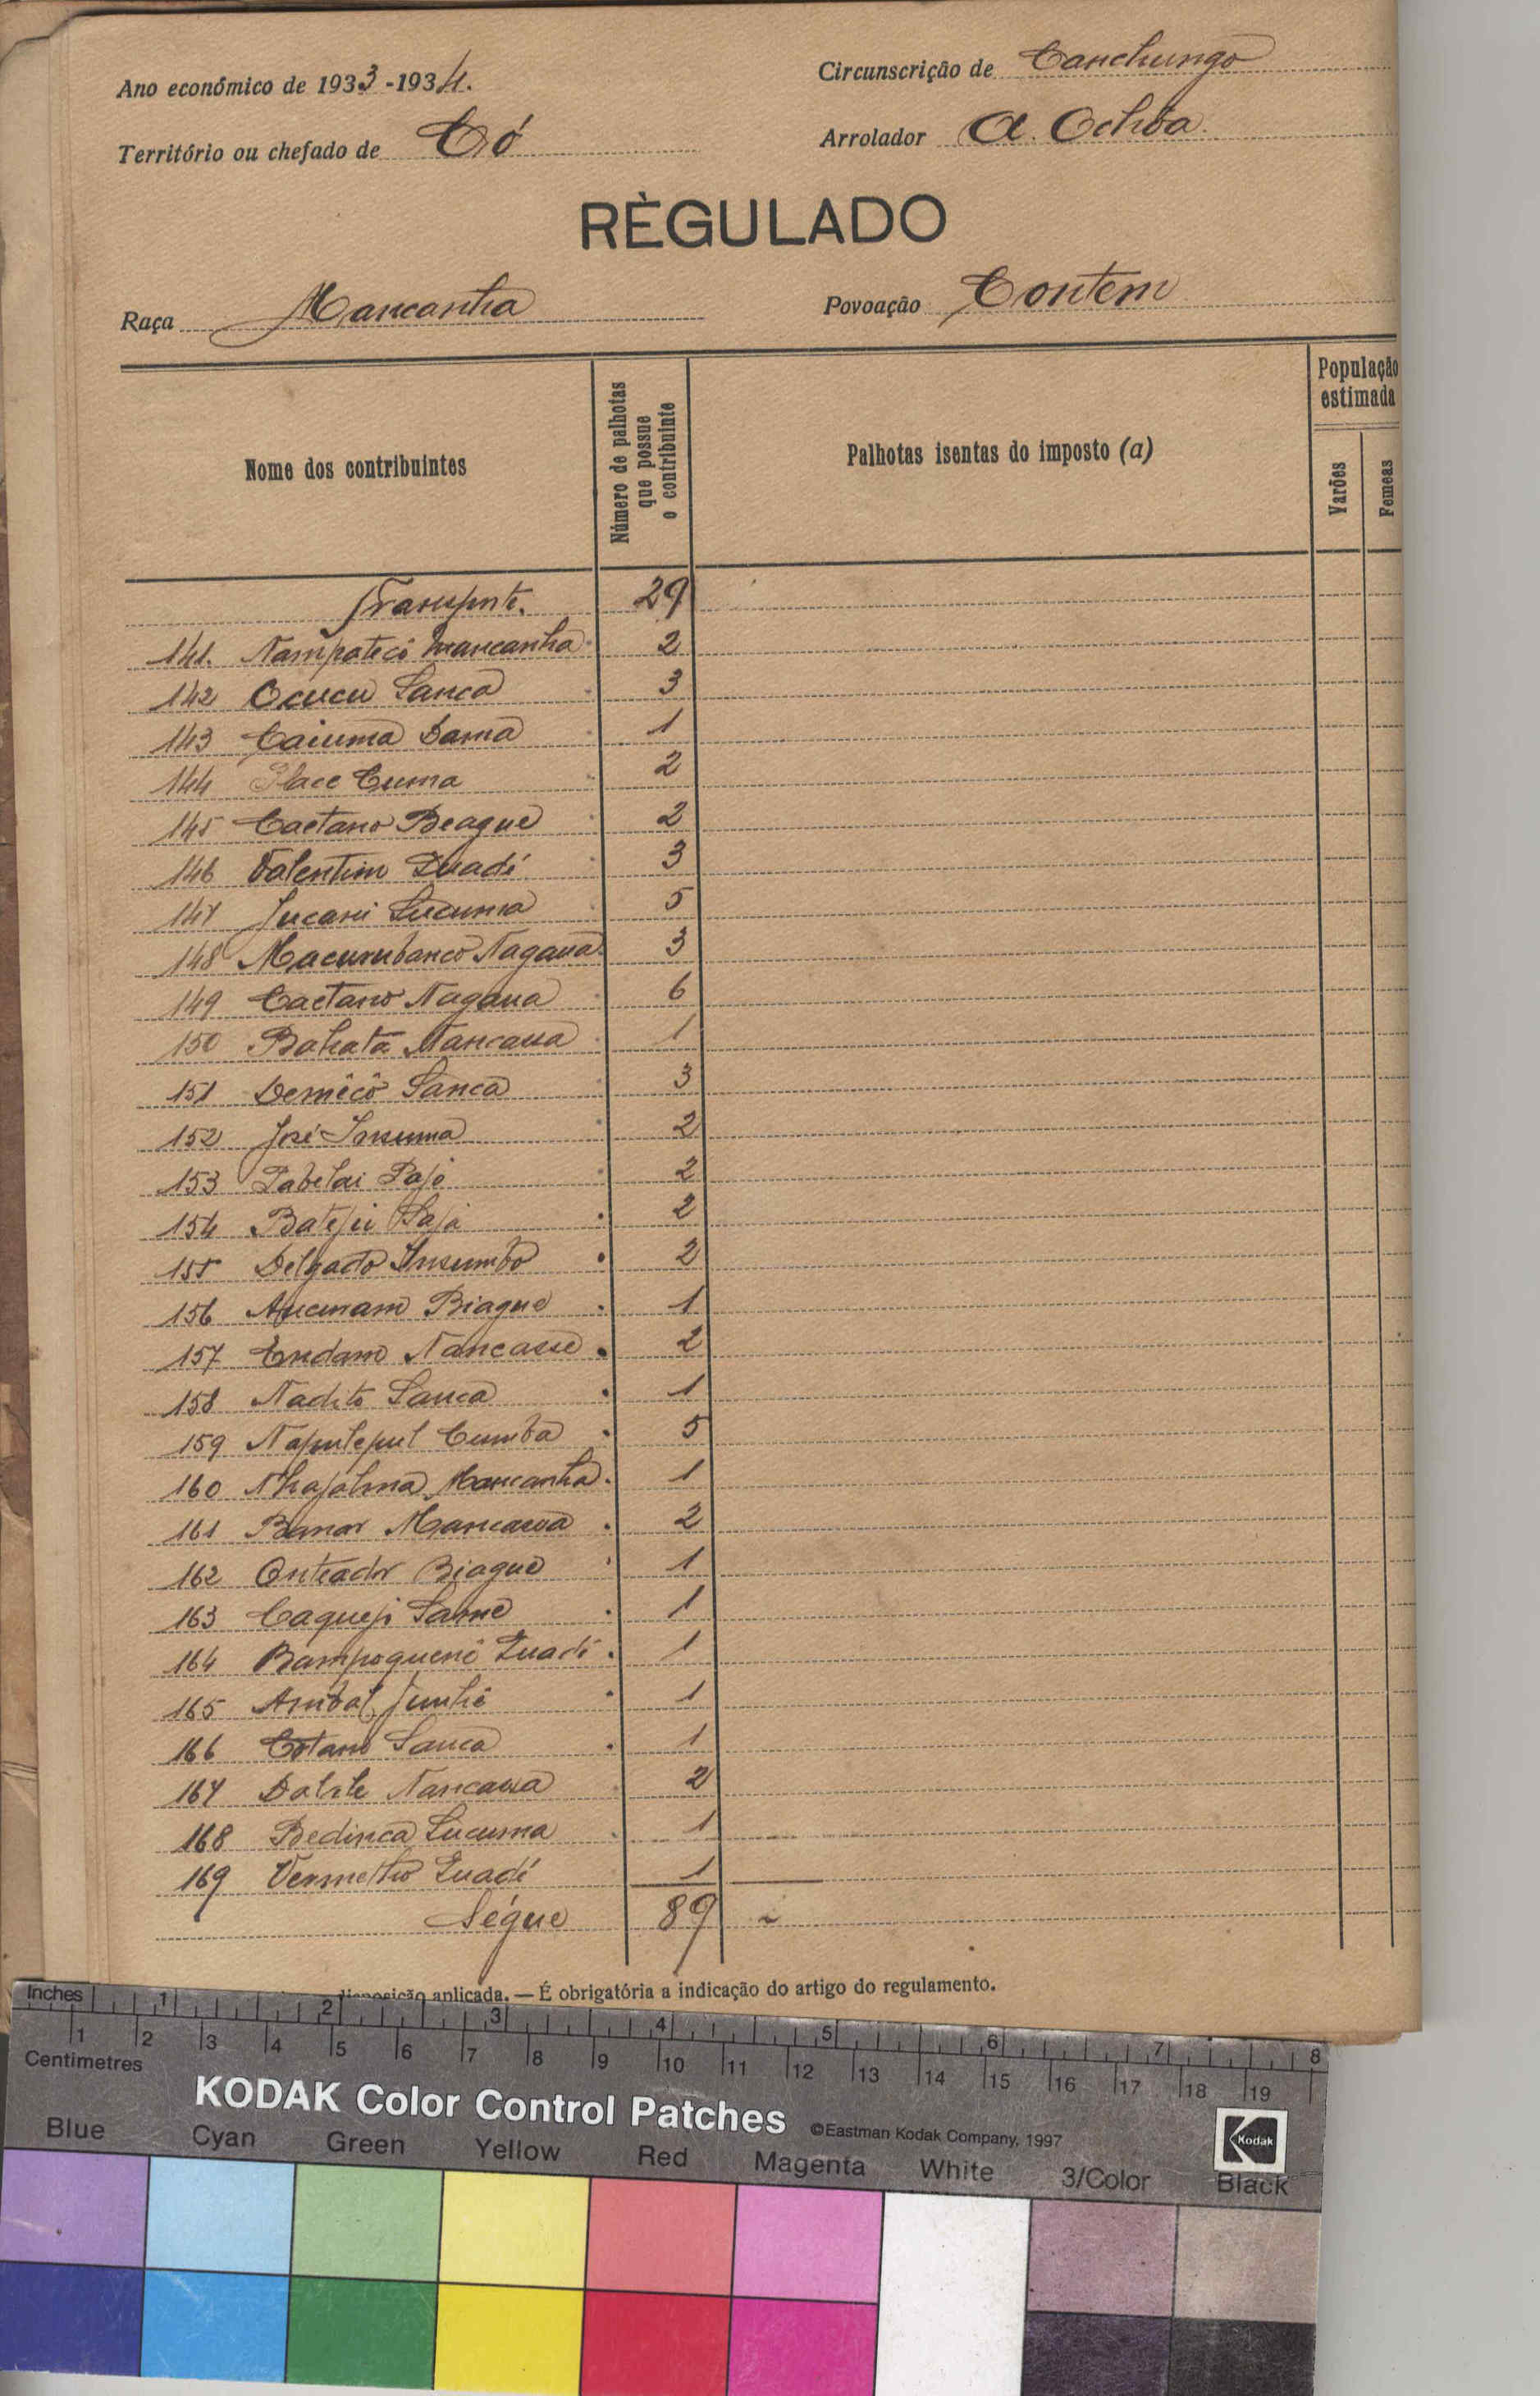 Ano económico de 1933-1934.
Circunscrição de Canchungo
Território ou chefado de Có
Arrolador A. Ochôa
RÈGULADO
Raça Mancanha
Povoação Contem
Nome dos contribuintes
Número de palhotas que possue o contribuinte
Palhotas isentas do imposto (a)
População estimada
Varões
Femeas
Transporte. 29
141. Nampatecô Mancanha 2
142 Ocucu Sanca 3
143 Caiuma Dama 1
144 Cuma 2
145 Caetano Beague 2
146 Valentim Zuadi 3
147 Jucani Lucuma 5
148 Macumbanco Nagaua 3
149 Caetano Nagaua 6
150 Bahata Nancaua 1
151 Demêcô Sanca 3
152 José Insuma 2
153 Pabelai 2
154 2
155 Delgado Insumbo 2
156 Biague 1
157 Endam Nancasse 2
158 Nadito Sanca 1
159 Napulepul Cumba 5
160 Mancanha 1
161 Banar Mancaua 2
162 Onteador Biague 1
163 Caquepi Same 1
164 Bampoquenê Zuadi 1
165 Anibal 1
166 Cotano Sanca 1
167 Nancaua 2
168 Bedinca Lucuma 1
169 Vermelho Zuadi 1
Ségue 89
disposição aplicada. — É obrigatória a indicação do artigo do regulamento.
Inches 1 2 3 4 5 6 7 8
1 2 3 4 5 6 7 8 9 10 11 12 13 14 15 16 17 18 19
Centimetres
KODAK Color Control Patches ©Eastman Kodak Company, 1997 Kodak
Blue Cyan Green Yellow Red Magenta White 3/Color Black